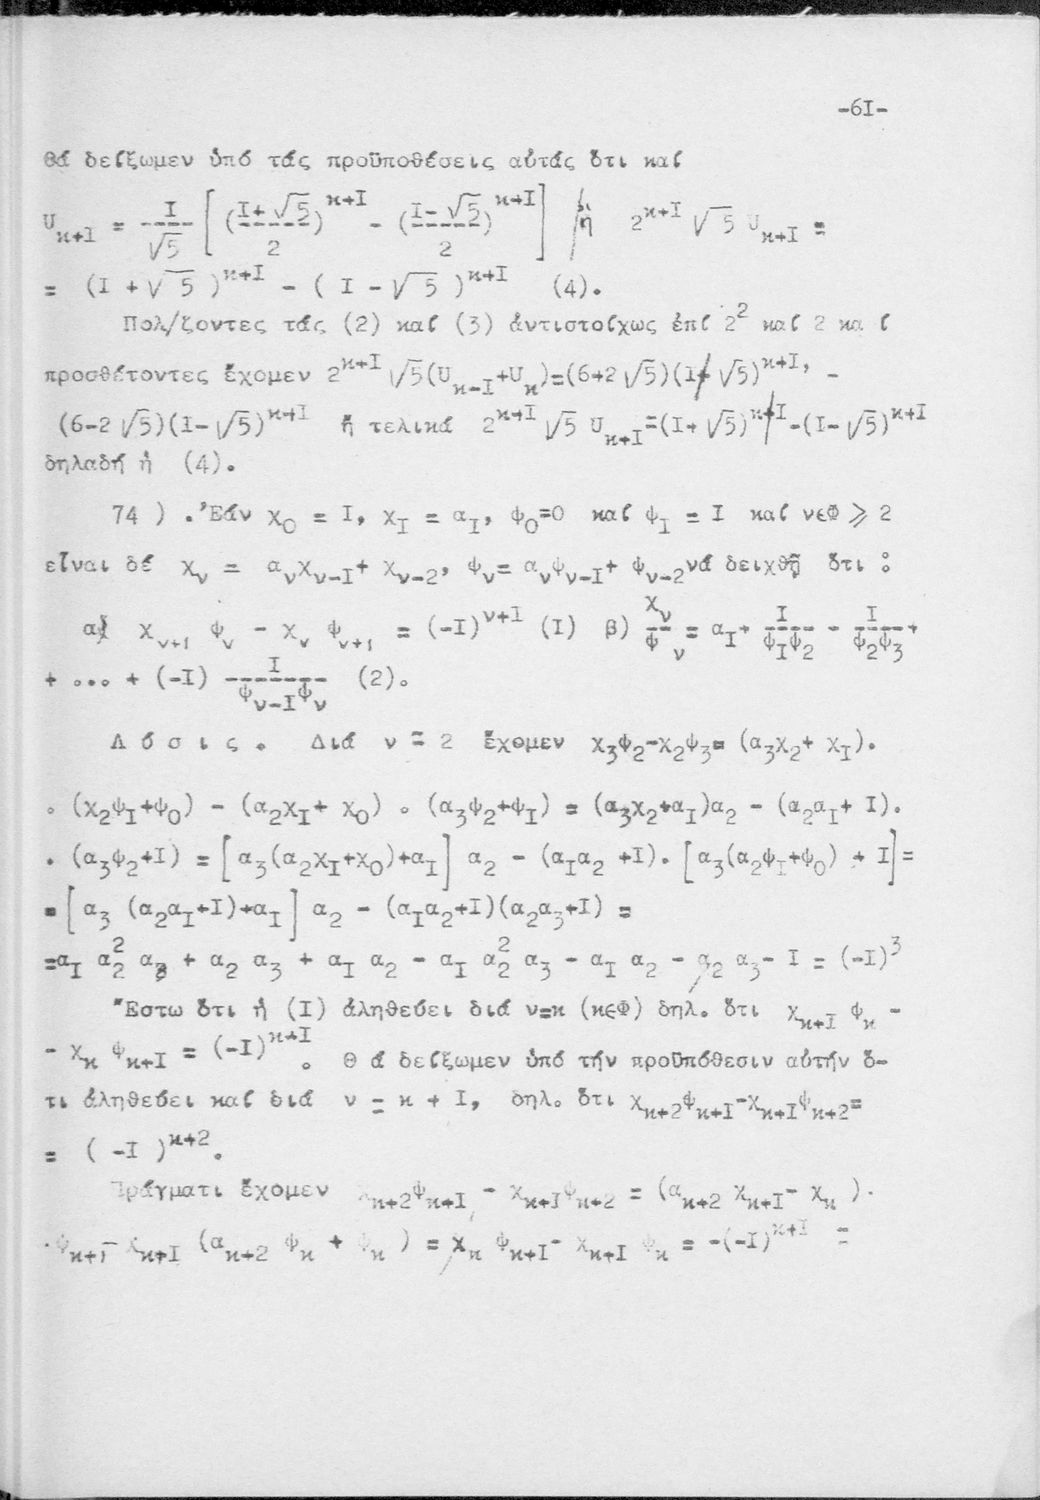 -6I-
θά δείξωμεν ὑπό τάς προϋποθέσεις αὐτάς ὅτι καί
U_{κ+1} = I/√5 [ ((I+√5)/2)^{κ+I} - ((I-√5)/2)^{κ+I} ] ἤ 2^{κ+I} √5 U_{κ+I} =
= (I +√5 )^{κ+I} - ( I -√5 )^{κ+I} (4).
Πολ/ζοντες τάς (2) καί (3) ἀντιστοίχως ἐπί 2² καί 2 κα ί
προσθέτοντες ἔχομεν 2^{κ+I} √5(U_{κ-I}+U_κ)=(6+2√5)(1+√5)^{κ+I}, -
(6-2√5)(I-√5)^{κ+I} ἤ τελικά 2^{κ+I} √5 U_{κ+I}=(I+√5)^{κ+I}-(I-√5)^{κ+I}
δηλαδή ἡ (4).
74 ) .Ἐάν χ_0 = I, χ_I = α_I, ψ_0=0 καί ψ_I = I καί νεΦ ⩾ 2
εἶναι δέ χ_ν = α_νχ_{ν-I}+ χ_{ν-2}, ψ_ν= α_νψ_{ν-I}+ ψ_{ν-2}νά δειχθῇ ὅτι :
α) χ_{ν+1} ψ_ν - χ_ν ψ_{ν+1} = (-I)^{ν+1} (I) β) χ_ν/ψ_ν = α_I+ I/ψ_Iψ_2 - I/ψ_2ψ_3+
+ ... + (-I) I/ψ_{ν-I}ψ_ν (2).
Λ ύ σ ι ς . Διά ν = 2 ἔχομεν χ_3ψ_2-χ_2ψ_3= (α_3χ_2+ χ_I).
. (χ_2ψ_I+ψ_0) - (α_2χ_I+ χ_0) . (α_3ψ_2+ψ_I) = (α_3χ_2+α_I)α_2 - (α_2α_I+ I).
. (α_3ψ_2+I) = [ α_3(α_2χ_I+χ_0)+α_I ] α_2 - (α_Iα_2 +I). [ α_3(α_2ψ_I+ψ_0) + I ] =
= [ α_3 (α_2α_I+I)+α_I ] α_2 - (α_Iα_2+I)(α_2α_3+I) =
=α_I α_2² α_3 + α_2 α_3 + α_I α_2 - α_I α_2² α_3 - α_I α_2 - α_2 α_3- I = (-I)³
Ἔστω ὅτι ἡ (I) ἀληθεύει διά ν=κ (κεΦ) δηλ. ὅτι χ_{κ+I} ψ_κ -
- χ_κ ψ_{κ+I} = (-I)^{κ+I}. Θ ά δείξωμεν ὑπό τήν προϋπόθεσιν αὐτήν ὅ-
τι ἀληθεύει καί διά ν = κ + I, δηλ. ὅτι χ_{κ+2}ψ_{κ+I}-χ_{κ+I}ψ_{κ+2}=
= ( -I )^{κ+2}.
Πράγματι ἔχομεν χ_{κ+2}ψ_{κ+I} - χ_{κ+I}ψ_{κ+2} = (α_{κ+2} χ_{κ+I}- χ_κ ).
.ψ_{κ+I}- χ_{κ+I} (α_{κ+2} ψ_κ + ψ_κ ) = χ_κ ψ_{κ+I}- χ_{κ+I} ψ_κ = -(-I)^{κ+I} =